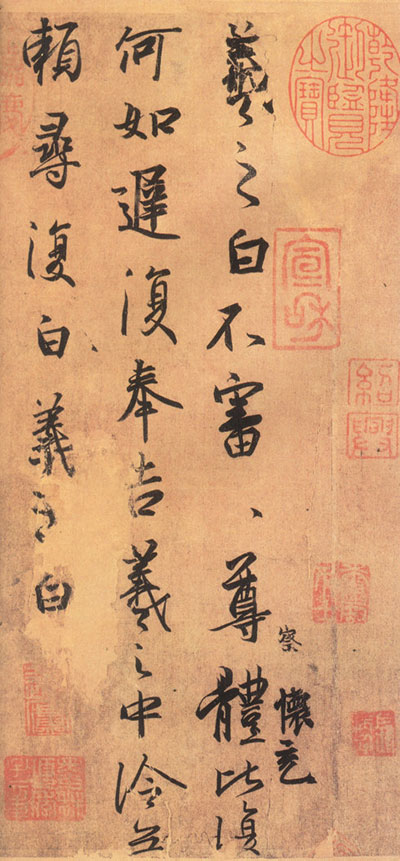 乾隆御覽之寶
宣和
紹興
羲之白不審、尊體比復
察
懷充
何如遲復奉告羲之中冷無
賴尋復白羲之白